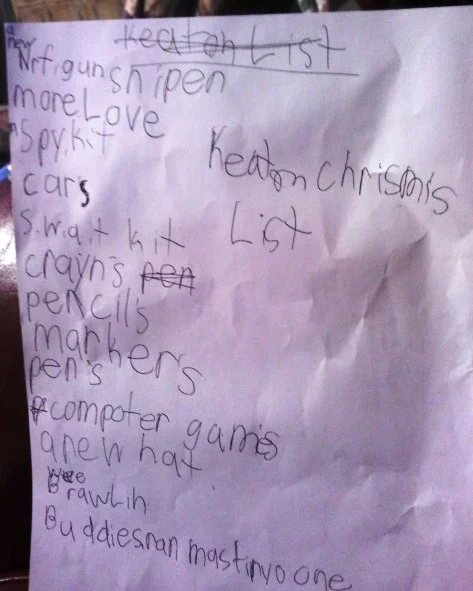 Keaton List
a new
Nrf.gun snipen
moreLove
a Spy.kit
Keaton chrismis
cars
List
s.wa.t kit
crayn's pen
pencil's
markers
pen's
compoter gamis
a new hat
wee
Brawlin
Buddiesnan mastinvo one